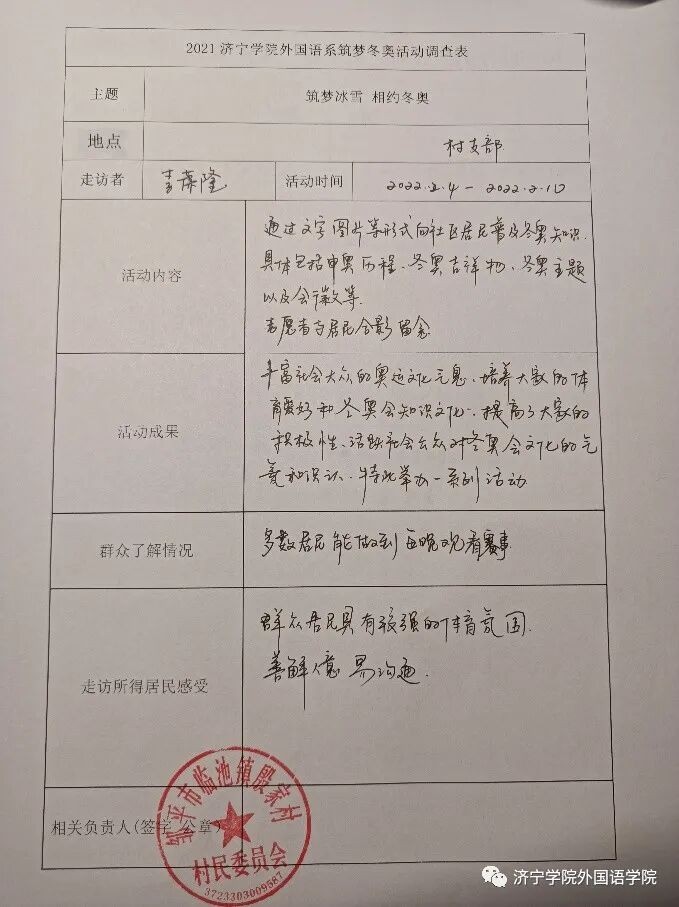 2021济宁学院外国语系筑梦冬奥活动调查表
主题 筑梦冰雪 相约冬奥
地点 村支部
走访者 李荣隆 活动时间 2022.2.4-2022.2.10
活动内容
通过文字图片等形式向社区居民普及冬奥知识.
具体包括申奥历程、冬奥吉祥物、冬奥主题
以及会徽等.
志愿者与居民合影留念
活动成果
丰富社会大众的奥运文化气息、培养大家的体
育爱好和冬奥会知识文化.提高了大家的
积极性、活跃社会公众对冬奥会文化的气
氛和识认.特此举办一系列活动
群众了解情况
多数居民能做到每晚观看赛事
走访所得居民感受
群众居民具有较强的体育氛围.
善解人意 易沟通.
相关负责人(签字 公章)
邹平市临池镇殷家村
村民委员会
3723303009587
济宁学院外国语学院